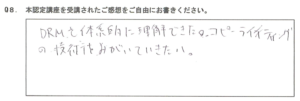 Q8. 本認定講座を受講されたご感想をご自由にお書きください。
DRMを体系的に理解できた。コピーライティング
の技術をみがいていきたい。